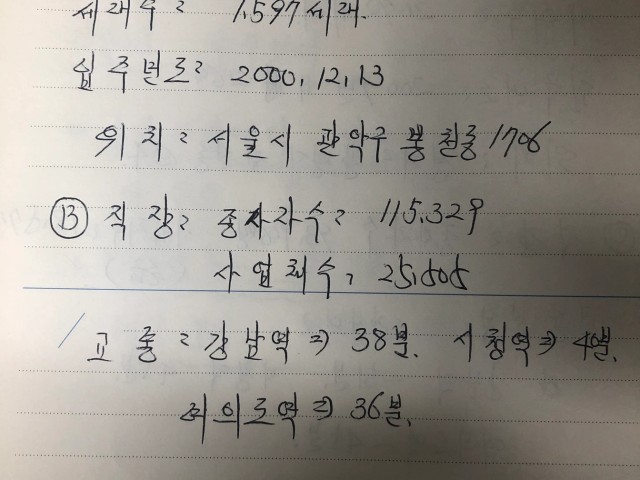 세대수: 1,597세대.
입주년도: 2000, 12, 13
위치: 서울시 관악구 봉천동 1706
Ⓑ 직장: 종사자수: 115,329
사업체수, 25,505
교통: 강남역⇒ 38분. 시청역⇒ 4분.
여의도역⇒ 36분.